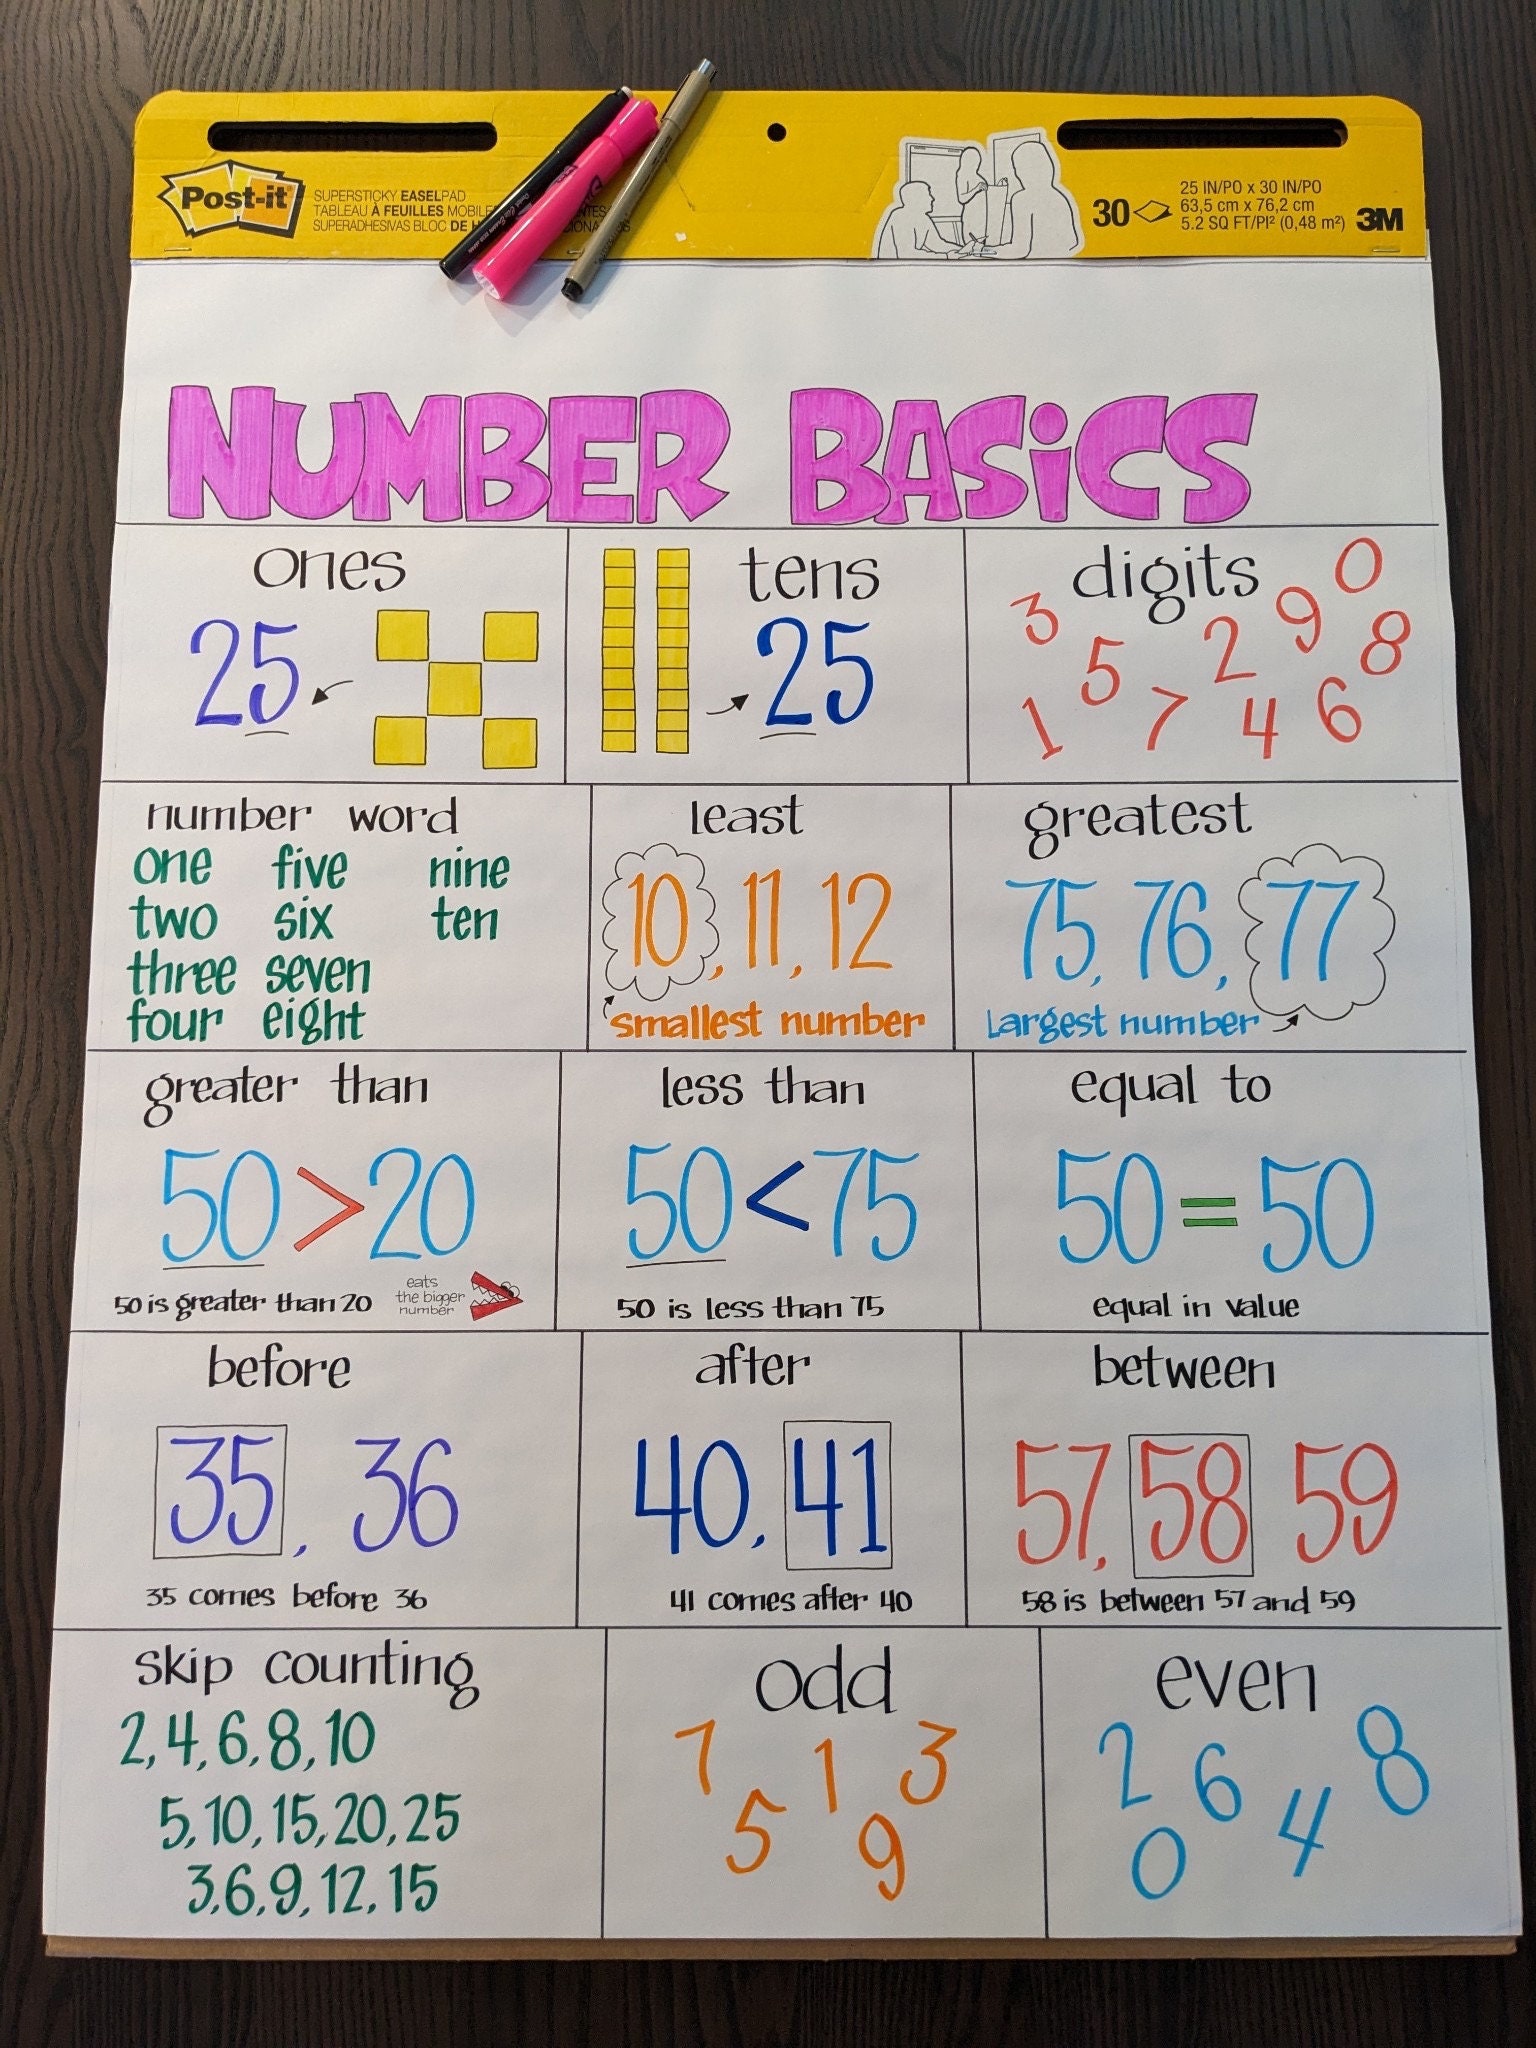 Post-it
SUPERSTICKY EASELPAD
TABLEAU À FEUILLES MOBILE
SUPERADHESIVAS BLOC DE
30
25 IN/PO x 30 IN/PO
63,5 cm x 76,2 cm
5.2 SQ FT/PI² (0,48 m²)
3M
NUMBER BASiCS
ones
25
tens
25
digits
3 5 2 9 0
1 7 4 6 8
number word
one five nine
two six ten
three seven
four eight
least
10, 11, 12
smallest number
greatest
75, 76, 77
Largest number
greater than
50 > 20
50 is greater than 20
eats
the bigger
number
less than
50 < 75
50 is less than 75
equal to
50 = 50
equal in value
before
35, 36
35 comes before 36
after
40, 41
41 comes after 40
between
57, 58 59
58 is between 57 and 59
skip counting
2, 4, 6, 8, 10
5, 10, 15, 20, 25
3, 6, 9, 12, 15
odd
7 1 3
5 9
even
2 6 8
0 4